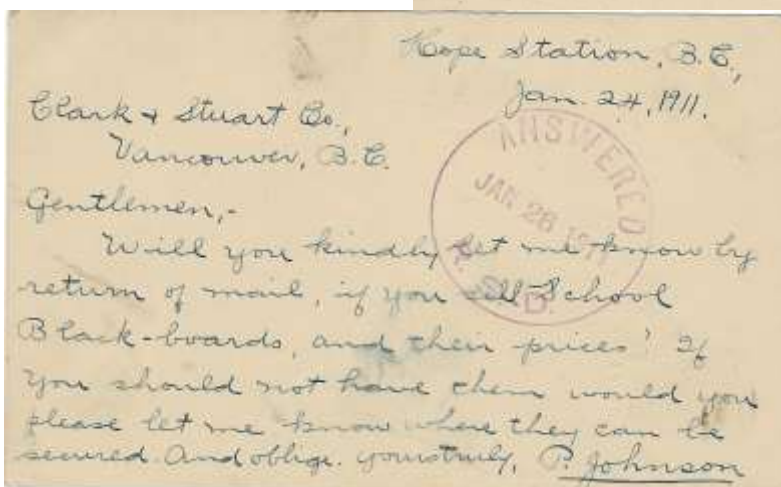 Hope Station, B.C.,
Jan. 24, 1911.
Clark & Stuart Co.,
Vancouver, B.C.
ANSWERED
JAN 26 191
D.
Gentlemen,-
Will you kindly let me know by
return of mail, if you sell School
Black-boards, and their prices? If
you should not have them would you
please let me know where they can be
secured. And oblige. yours truly, P. Johnson